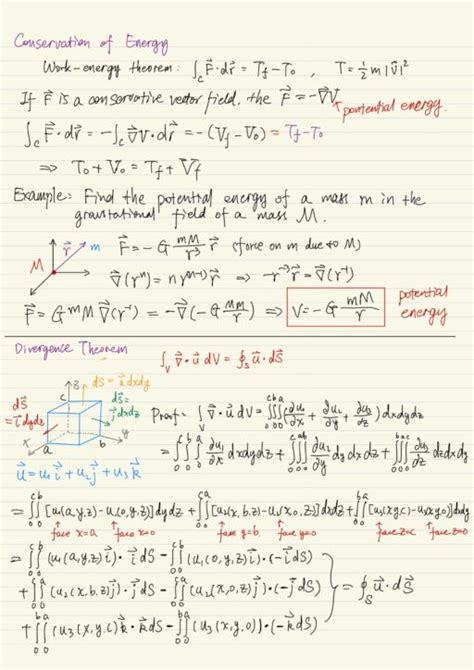 Conservation of Energy
Work-energy theorem: ∫_C F⃗·dr⃗ = T_f − T_0 , T = ½ m |v⃗|²
If F⃗ is a conservative vector field, the F⃗ = −∇⃗V
potential energy.
∫_C F⃗·dr⃗ = −∫_C ∇⃗V·dr⃗ = −(V_f − V_0) = T_f − T_0
⇒ T_0 + V_0 = T_f + V_f
Example: Find the potential energy of a mass m in the
gravitational field of a mass M.
M r⃗ m F⃗ = −G mM/r³ r⃗ (force on m due to M)
∇⃗(rⁿ) = n r^(n−2) r⃗ ⇒ −r⁻³ r⃗ = ∇⃗(r⁻¹)
F⃗ = G mM ∇⃗(r⁻¹) = −∇⃗(−G Mm/r) ⇒ V = −G mM/r potential energy
Divergence Theorem ∫_V ∇⃗·u⃗ dV = ∮_S u⃗·dS⃗
dS⃗ = k⃗ dxdy
dS⃗ = i⃗ dydz
dS⃗ = j⃗ dxdz
z c x a b y
u⃗ = u₁i⃗ + u₂j⃗ + u₃k⃗
Proof: ∫_V ∇⃗·u⃗ dV = ∫∫∫ (∂u₁/∂x + ∂u₂/∂y + ∂u₃/∂z) dxdydz
= ∫∫∫ ∂u₁/∂x dxdydz + ∫∫∫ ∂u₂/∂y dy dxdz + ∫∫∫ ∂u₃/∂z dz dxdy
= ∫∫ [u₁(a,y,z) − u₁(0,y,z)] dydz + ∫∫ [u₂(x,b,z) − u₂(x,0,z)] dxdz + ∫∫ [u₃(x,y,c) − u₃(x,y,0)] dxdy
face x=a face x=0 face y=b. face y=0 face z=c face z=0
= ∫∫ (u₁(a,y,z) i⃗)·i⃗ dS − ∫∫ (u₁(0,y,z) i⃗)·(−i⃗ dS)
+ ∫∫ (u₂(x,b,z) j⃗)·j⃗ dS − ∫∫ (u₂(x,0,z) j⃗)·(−j⃗ dS) = ∮_S u⃗·dS⃗
+ ∫∫ (u₃(x,y,c) k⃗·k⃗ dS − ∫∫ (u₃(x,y,0)]·(−k⃗ dS)